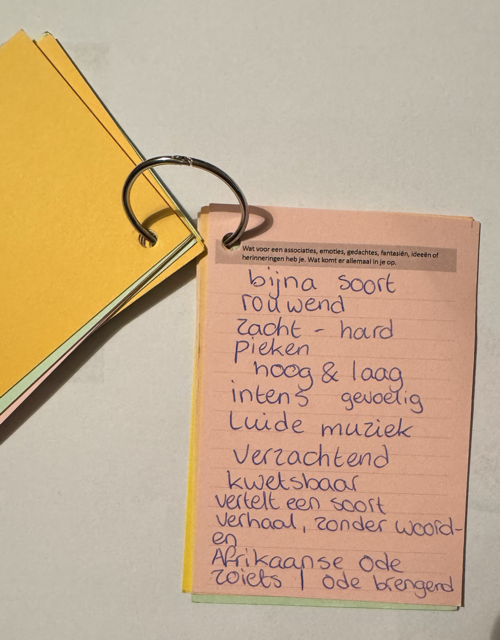 Wat voor een associaties, emoties, gedachtes, fantasiën, ideeën of
herinneringen heb je. Wat komt er allemaal in je op.
bijna soort
rouwend
zacht - hard
pieken
hoog & laag
intens gevoelig
Luide muziek
verzachtend
kwetsbaar
vertelt een soort
verhaal, zonder woord-
en
Afrikaanse ode
zoiets | ode brengend